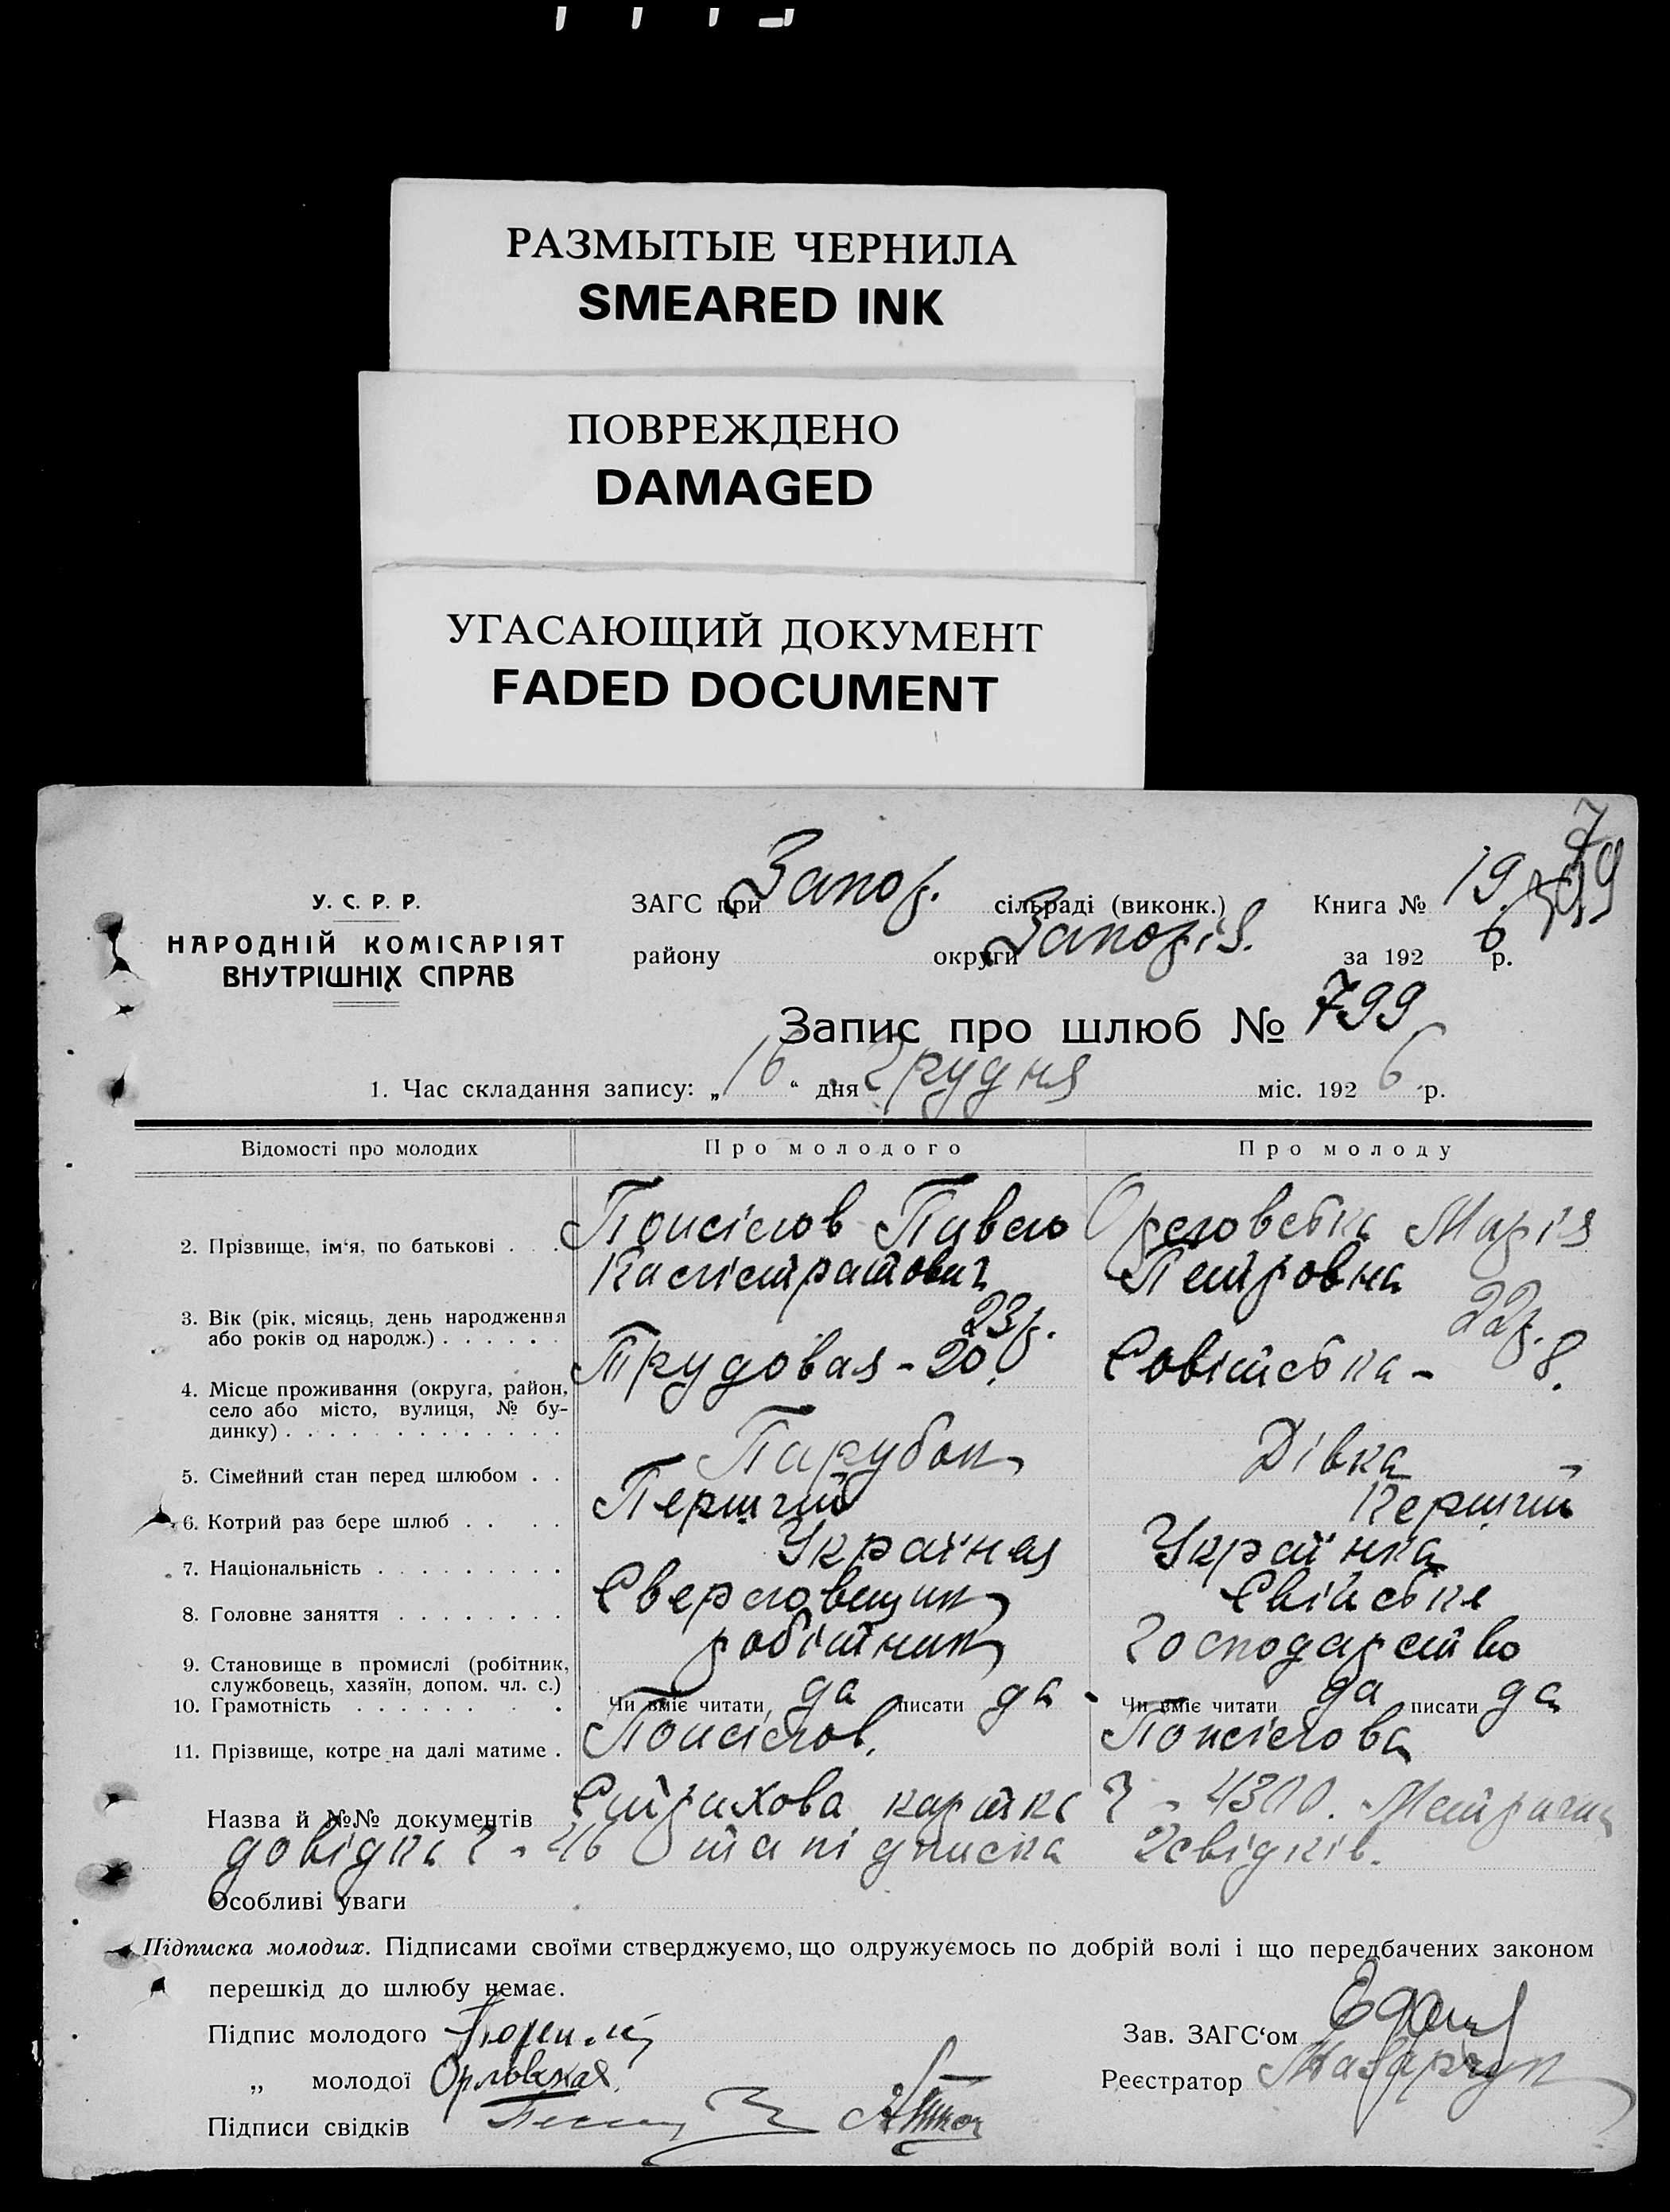 РАЗМЫТЫЕ ЧЕРНИЛА
SMEARED INK
ПОВРЕЖДЕНО
DAMAGED
УГАСАЮЩИЙ ДОКУМЕНТ
FADED DOCUMENT
У. С. Р. Р.
НАРОДНІЙ КОМІСАРІЯТ
ВНУТРІШНІХ СПРАВ
ЗАГС при Запор. сільраді (виконк.) Книга № 19
району округи Запоріз. за 192 6 р.
Запис про шлюб № 799
1. Час складання запису: „16“ дня Грудня міс. 192 6 р.
Відомості про молодих Про молодого Про молоду
2. Прізвище, ім‘я, по батькові . . Павло Орловська Марія
Петровна
3. Вік (рік, місяць, день народження
або років од народж.) . . . . . . 23р. 22р.
4. Місце проживання (округа, район,
село або місто, вулиця, № бу-
динку) . . . . . . . . . . . . . Трудовая - 20. Совітська - 8.
5. Сімейний стан перед шлюбом . . Парубок Дівка
6. Котрий раз бере шлюб . . . . Перший Перший
7. Національність . . . . . . . . . Українець Українка
8. Головне заняття . . . . . . . . Сверловщик Свійське
9. Становище в промислі (робітник,
службовець, хазяїн, допом. чл. с.) робітник господарство
10. Грамотність . . . . . . . . Чи вміє читати да писати да Чи вміє читати да писати да
11. Прізвище, котре на далі матиме .
Назва й №№ документів Страхова картка Ч - 4300. Метрична
довідка Ч - 46 та підписка 2 свідків.
Особливі уваги
Підписка молодих. Підписами своїми стверджуємо, що одружуємось по добрій волі і що передбачених законом
перешкід до шлюбу немає.
Підпис молодого Зав. ЗАГС‘ом
„ молодої Орловская Реєстратор
Підписи свідків